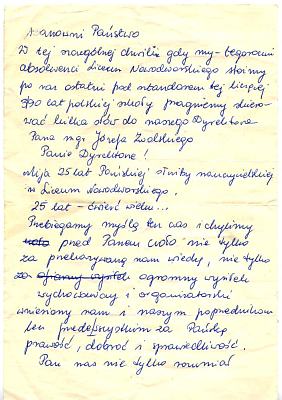 Szanowni Państwo
W tej szczególnej chwili gdy my - tegoroczni
absolwenci Liceum Nowodworskiego stoimy
po raz ostatni pod sztandarem tej liczącej
390 lat polskiej szkoły pragniemy skiero-
wać kilka słów do naszego Dyrektora
Pana mgr Józefa
Panie Dyrektorze!
Mija 25 lat Pańskiej służby nauczycielskiej
w Liceum Nowodworskiego.
25 lat - ćwierć wieku...
Przebiegamy myślą ten czas i chylimy
czoło przed Panem czoło nie tylko
za przekazywaną nam wiedzę, nie tylko
za ogromny wysiłek ogromny wysiłek
wychowawczy i organizatorski
wniesiony nam i naszym poprzednikom
lecz przede wszystkim za Pańską
prawość, dobroć i sprawiedliwość.
Pan nas nie tylko rozumiał